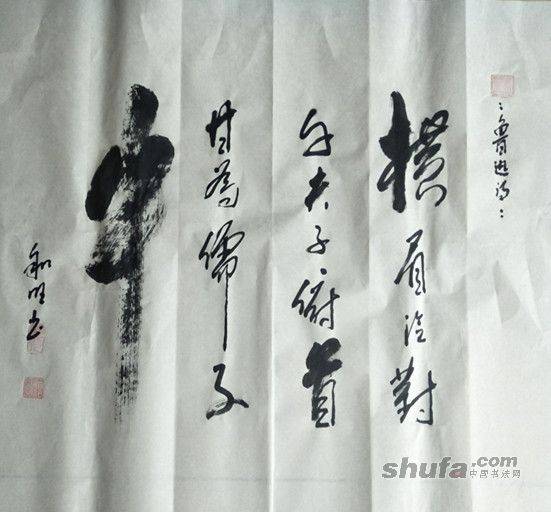 ：魯迅诗：
横眉冷對
千夫子俯首
甘為儒子
牛
和明书
shufa.com
中国书法网